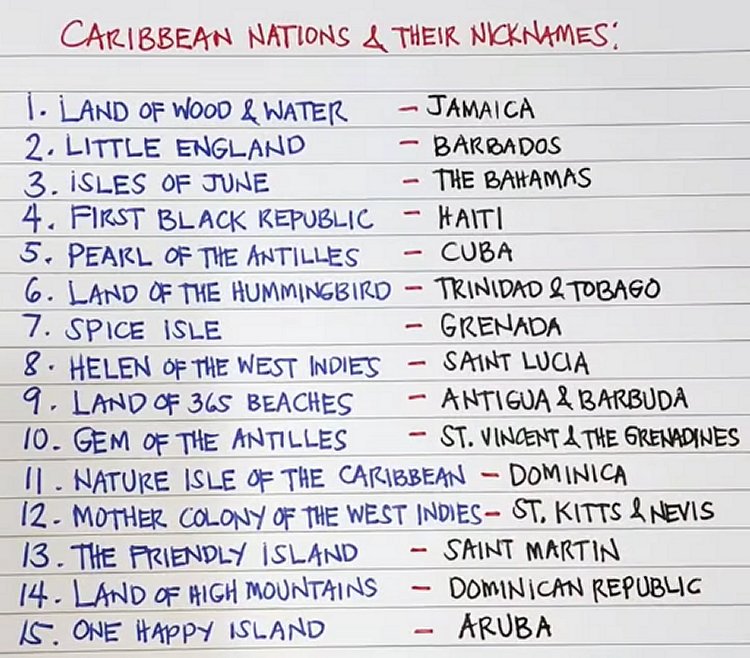 CARIBBEAN NATIONS & THEIR NICKNAMES:
1. LAND OF WOOD & WATER - JAMAICA
2. LITTLE ENGLAND - BARBADOS
3. ISLES OF JUNE - THE BAHAMAS
4. FIRST BLACK REPUBLIC - HAITI
5. PEARL OF THE ANTILLES - CUBA
6. LAND OF THE HUMMINGBIRD - TRINIDAD & TOBAGO
7. SPICE ISLE - GRENADA
8. HELEN OF THE WEST INDIES - SAINT LUCIA
9. LAND OF 365 BEACHES - ANTIGUA & BARBUDA
10. GEM OF THE ANTILLES - ST. VINCENT & THE GRENADINES
11. NATURE ISLE OF THE CARIBBEAN - DOMINICA
12. MOTHER COLONY OF THE WEST INDIES - ST. KITTS & NEVIS
13. THE FRIENDLY ISLAND - SAINT MARTIN
14. LAND OF HIGH MOUNTAINS - DOMINICAN REPUBLIC
15. ONE HAPPY ISLAND - ARUBA